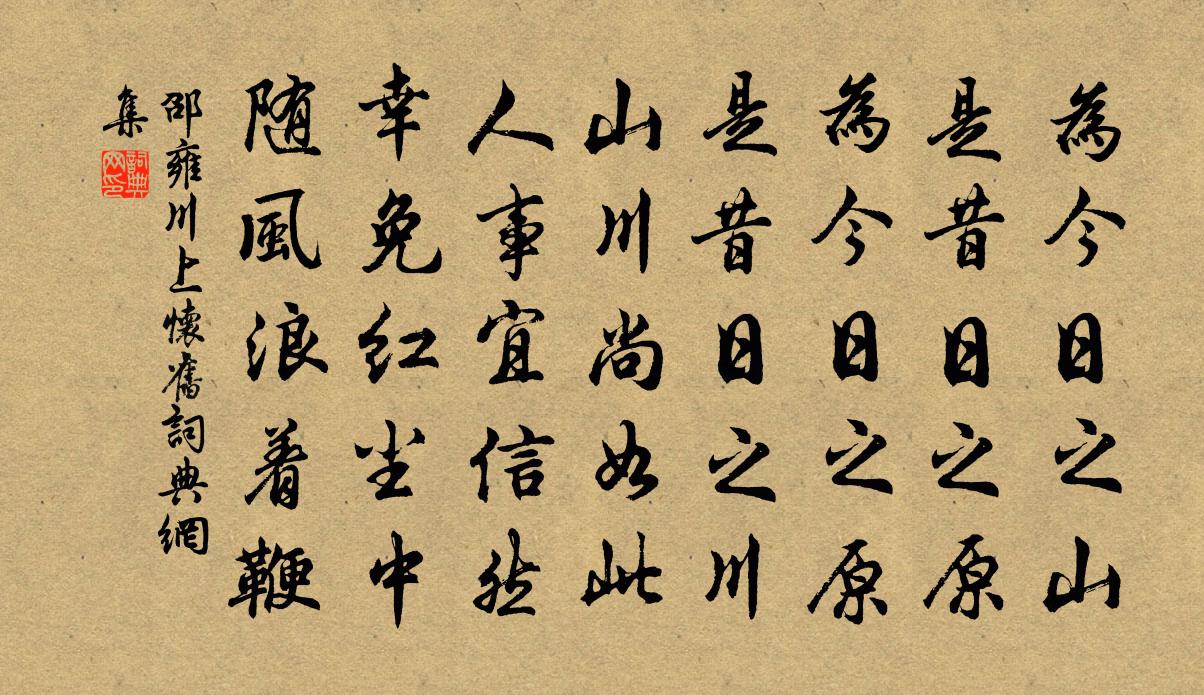 為今日之山
是昔日之原
為今日之原
是昔日之川
山川尚如此
人事宜信然
幸免红尘中
随風浪着鞭
邵雍川上懷舊詞典網
集
詞典
网印